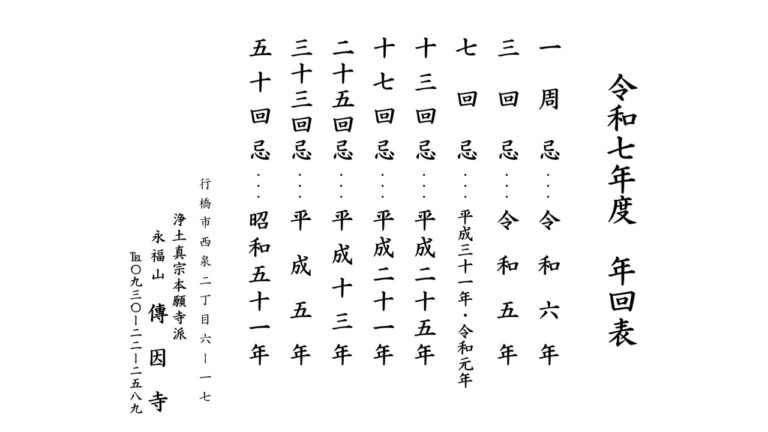 令和七年度　年回表
一周忌…令和六年
三回忌…令和五年
七回忌…平成三十一年・令和元年
十三回忌…平成二十五年
十七回忌…平成二十一年
二十五回忌…平成十三年
三十三回忌…平成五年
五十回忌…昭和五十一年
行橋市西泉二丁目六ー一七
浄土真宗本願寺派
永福山　傳因寺
℡〇九三〇ー二二ー二五八九